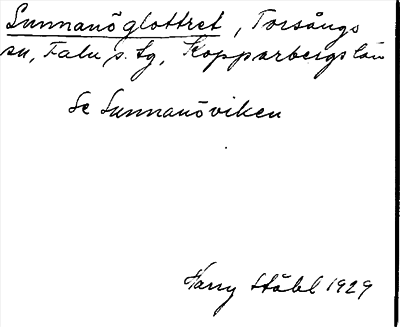 Sunnanöglottret, Torsångs
sn, Falu s. tg, Kopparbergs län
Se Sunnanöviken
Harry Ståhl 1929